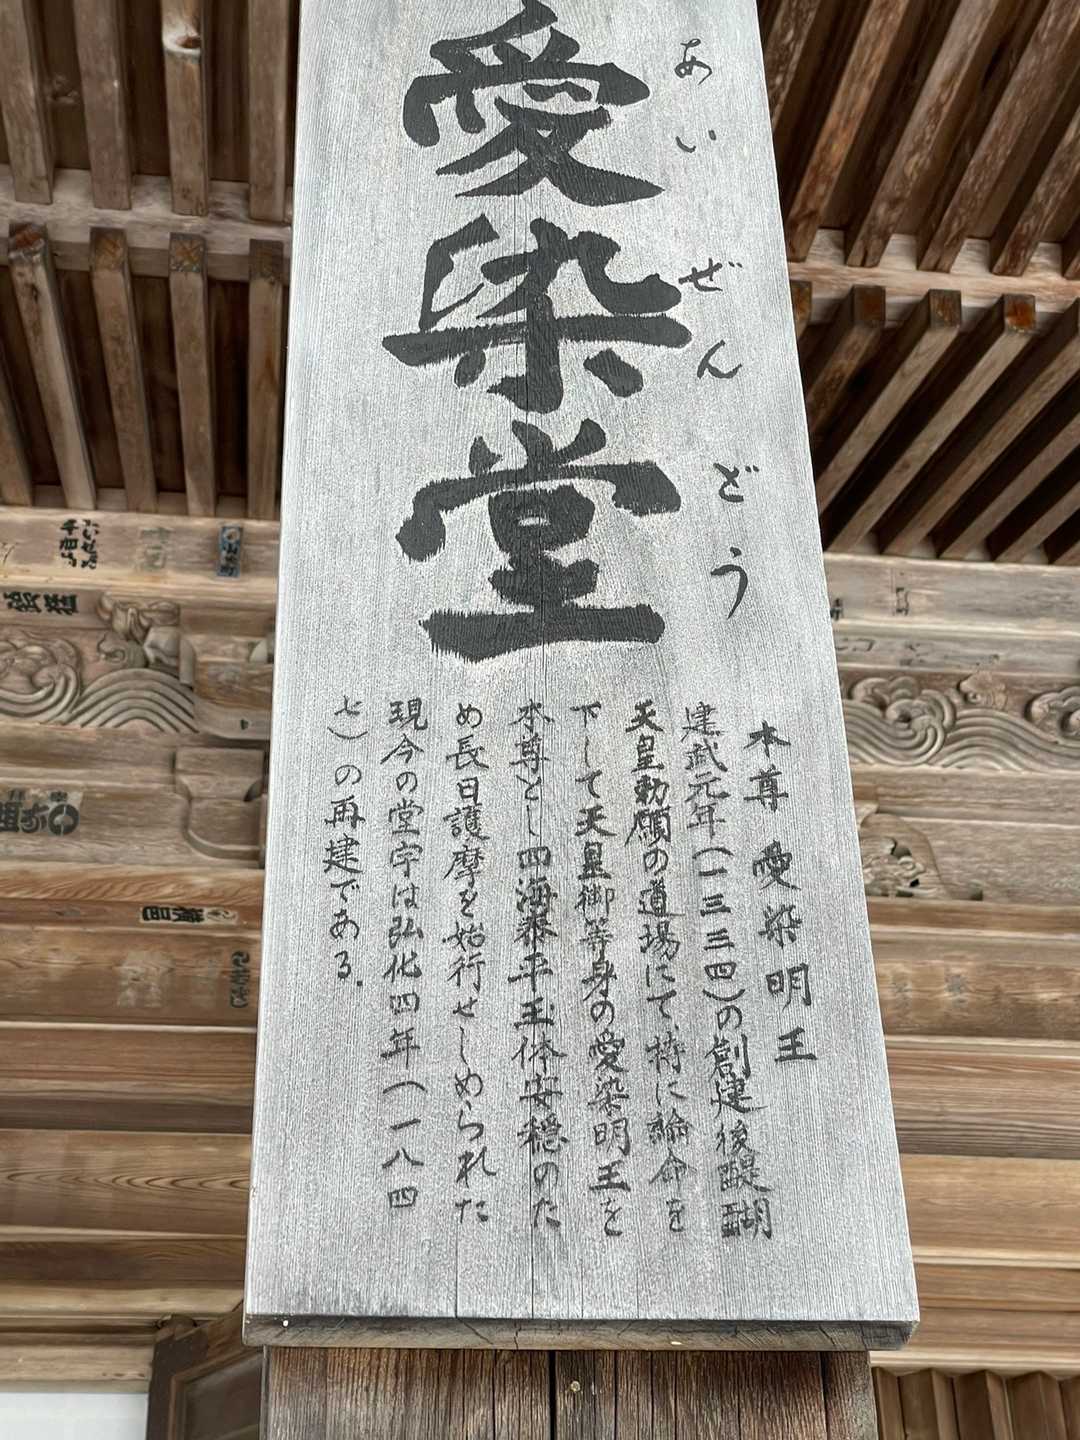 愛染堂
あいぜんどう
本尊 愛染明王
建武元年(一三三四)の創建後醍醐
天皇勅願の道場にて、特に論命を
下して天皇御等身の愛染明王を
本尊とし四海泰平玉体安穏のた
め長日護摩を始行せしめられた
現今の堂宇は弘化四年(一八四
七)の再建である.